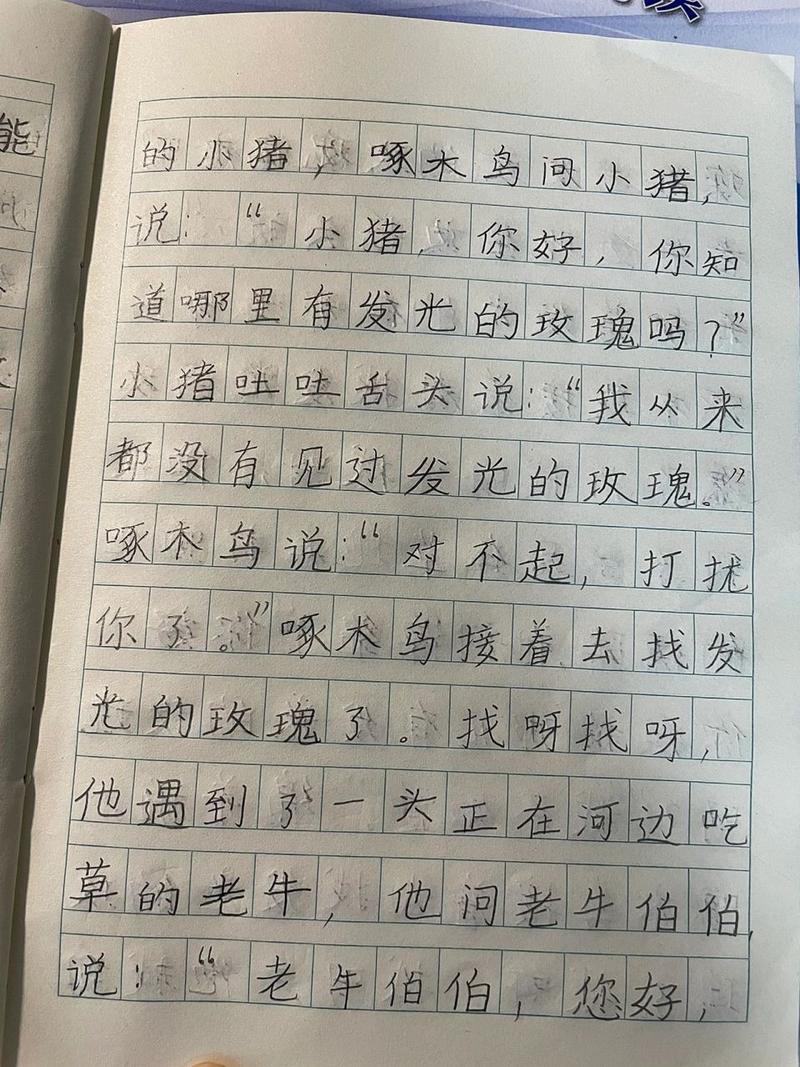 能
的小猪，啄木鸟问小猪，
说：“小猪，你好，你知
道哪里有发光的玫瑰吗？”
小猪吐吐舌头说：“我从来
都没有见过发光的玫瑰。”
啄木鸟说：“对不起，打扰
你了。”啄木鸟接着去找发
光的玫瑰了。找呀找呀，
他遇到了一头正在河边吃
草的老牛，他问老牛伯伯，
说：“老牛伯伯，您好，